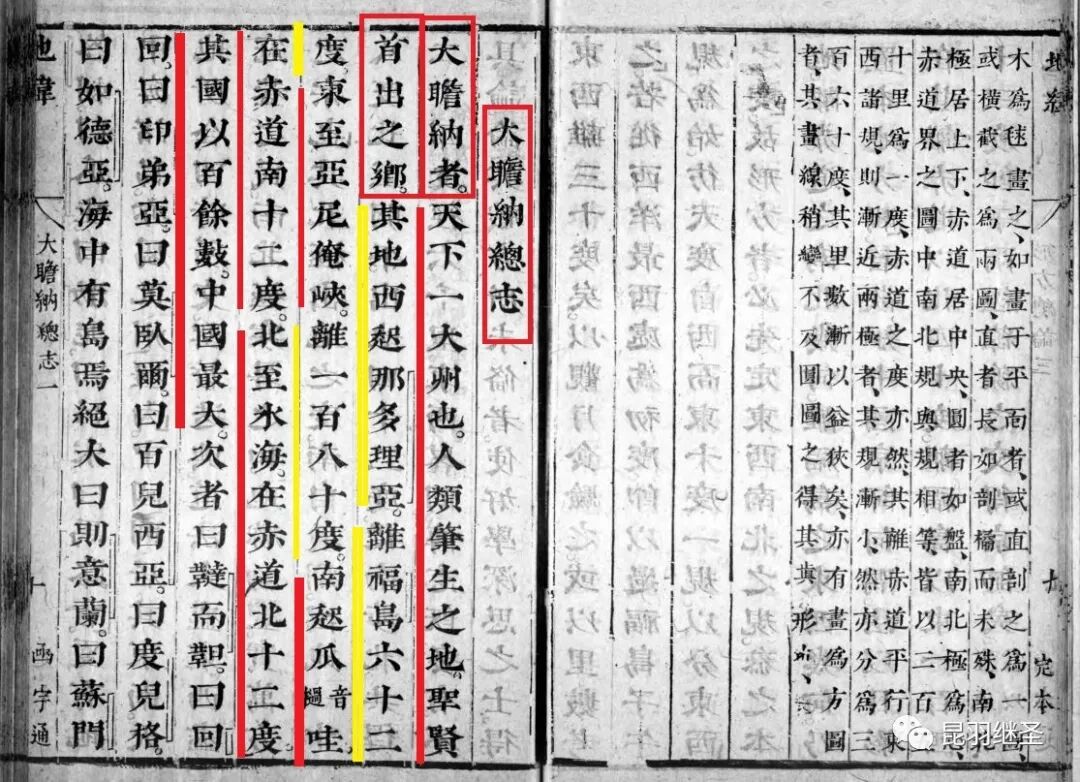 木爲毬畫之、如畫于平面者、或直剖之爲一
或橫截之爲兩圖、直者長如剖橘而未殊、南
極居上下、赤道居中央、圓者如盤、南北極爲
赤道界之圖中南北規與規相等、皆以二百
十里爲一度、赤道之度亦然、其離赤道平行東
西諸規、則漸近兩極者、其規漸小、然亦分爲三
百六十度、其里數漸以益狹矣、亦有畫爲方圖
者、其畫線稍變不及圓圖之得其眞形
大瞻納總志
大瞻納者。天下一大州也。人類肇生之地。聖賢
首出之鄉。其地西起那多理亞。離福島六十二
度。東至亞尼俺峽。離一百八十度。南起瓜音撾哇
在赤道南十二度。北至氷海。在赤道北十二度
其國以百餘數。中國最大。次者曰韃而靼。曰回
回。曰印弟亞。曰莫臥爾。曰百兒西亞。曰度兒格。
曰如德亞。海中有島焉絕大曰則意蘭。曰蘇門
地緯 大瞻納總志一 十 函宇通
昆羽继圣